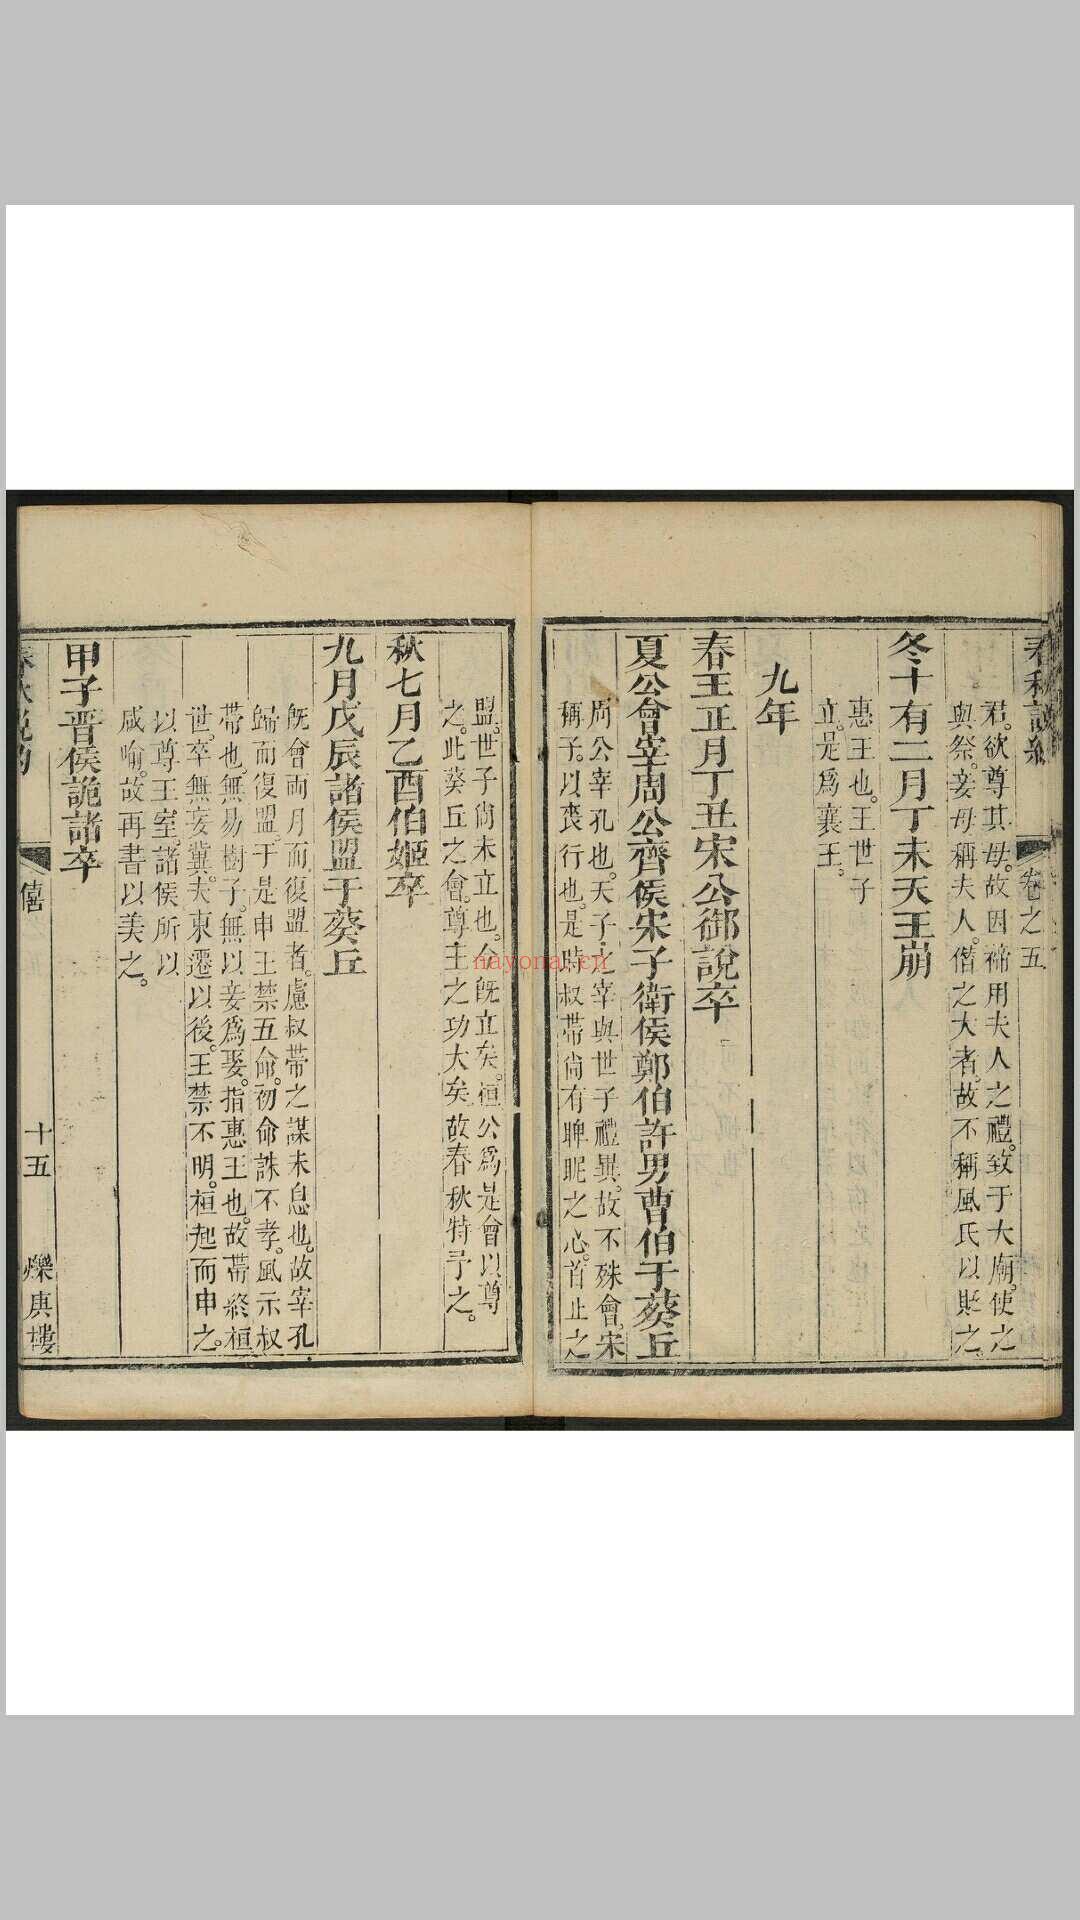 卷之五
君。欲尊其母。故因禘用夫人之禮。致于大廟。使之
與祭。妾母稱夫人。僭之大者。故不稱風氏以貶之。
冬十有二月丁未天王崩
惠王也。王世子
立。是爲襄王。
九年
春王正月丁丑宋公御說卒
夏公會宰周公齊侯宋子衛侯鄭伯許男曹伯于葵丘
周公宰孔也。天子之宰與世子禮異。故不殊會。宋
稱子。以喪行也。是時叔帶尙有睥睨之心。首止之
盟。世子尙未立也。今旣立矣。桓公爲是會以尊
之。此葵丘之會。尊王之功大矣。故春秋特予之。
秋七月乙酉伯姬卒
九月戊辰諸侯盟于葵丘
旣會兩月而復盟者。慮叔帶之謀未息也。故宰孔
歸而復盟。于是申王禁五命。初命誅不孝。風示叔
帶也。無易樹子。無以妾爲娶。指惠王也。故帶終桓
世。卒無妄冀。夫東遷以後。王禁不明。桓起而申之。
以尊王室。諸侯所以
咸喻。故再書以美之。
甲子晋侯詭諸卒
僖
十五
爍庚樓
nayona.cn